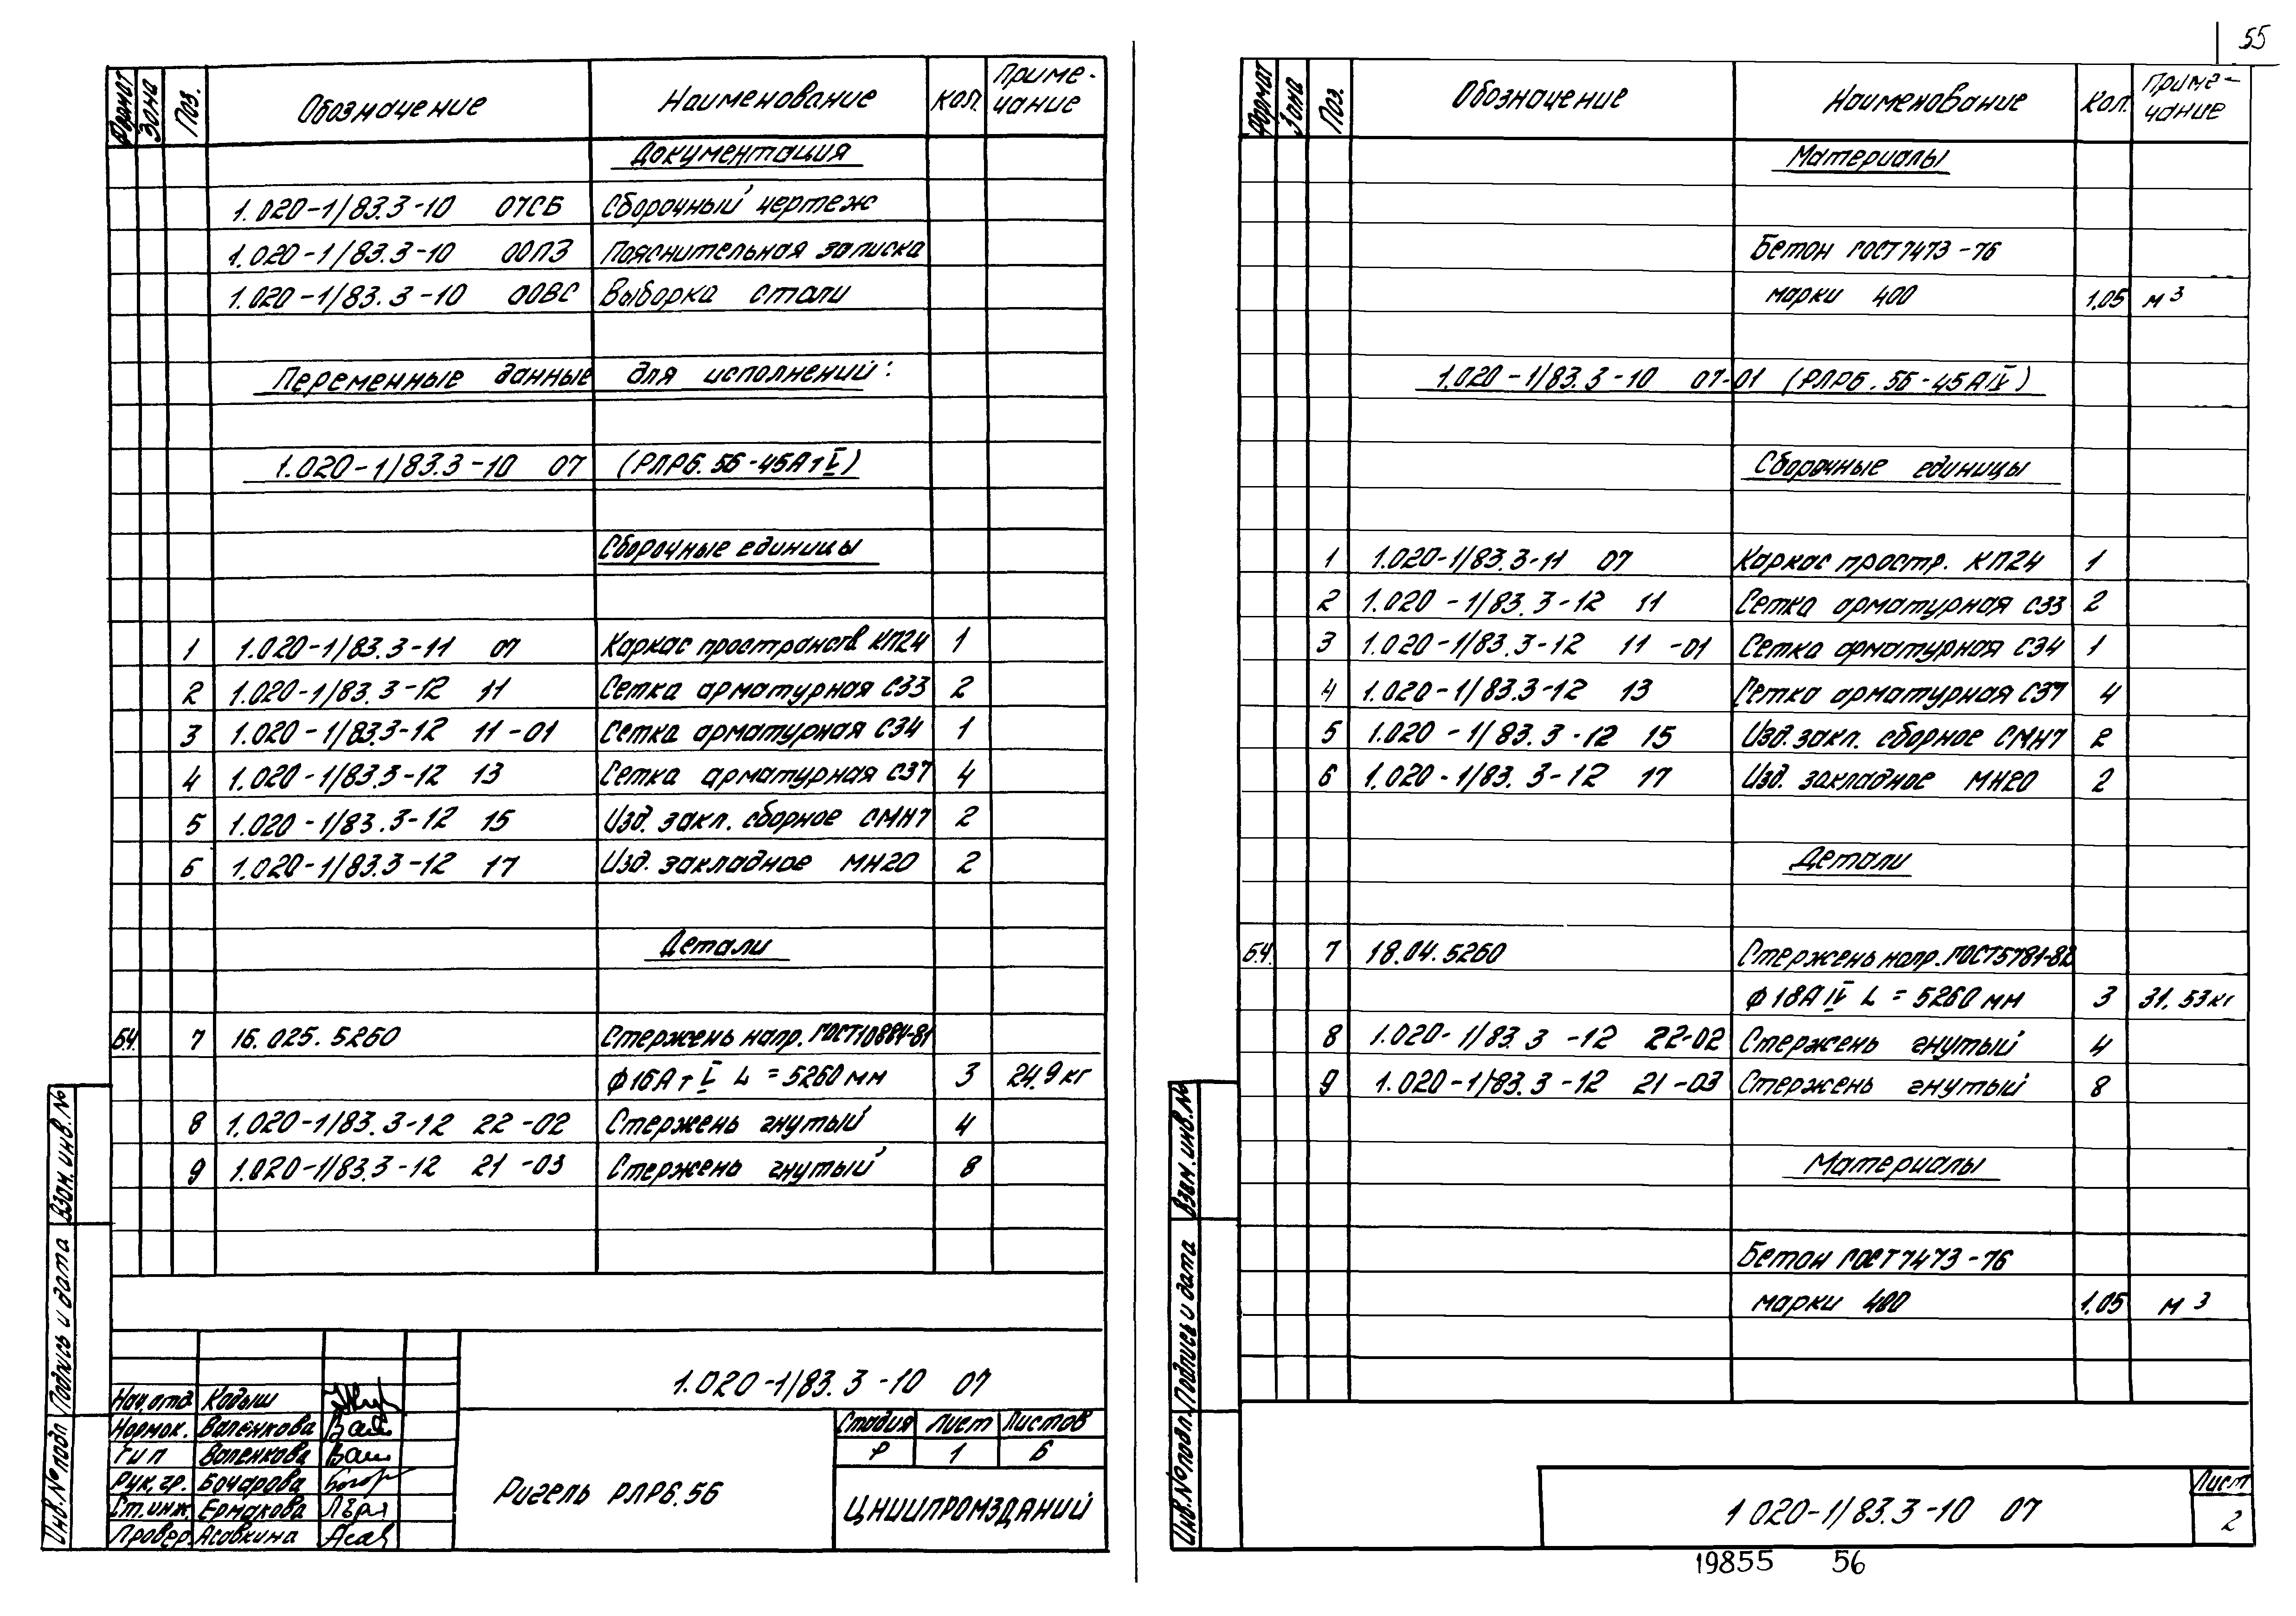 55
Формат Зона Поз. Обозначение Наименование Кол. Приме-чание
Документация
1.020-1/83.3-10 07СБ Сборочный чертеж
1.020-1/83.3-10 00ПЗ Пояснительная записка
1.020-1/83.3-10 00ВС Выборка стали
Переменные данные для исполнений:
1.020-1/83.3-10 07 (РЛР6.56-45АтV)
Сборочные единицы
1 1.020-1/83.3-11 07 Каркас пространств КП24 1
2 1.020-1/83.3-12 11 Сетка арматурная С33 2
3 1.020-1/83.3-12 11-01 Сетка арматурная С34 1
4 1.020-1/83.3-12 13 Сетка арматурная С37 4
5 1.020-1/83.3-12 15 Изд. закл. сборное СМН7 2
6 1.020-1/83.3-12 17 Изд. закладное МН20 2
Детали
БЧ. 7 16.025.5260 Стержень напр. ГОСТ10884-81
ф16АтV L=5260мм 3 24.9кг
8 1.020-1/83.3-12 22-02 Стержень гнутый 4
9 1.020-1/83.3-12 21-03 Стержень гнутый 8
Взам. инв. №
Подпись и дата
Инв. № подл
1.020-1/83.3-10 07
Нач. отд. Кодыш
Нормок. Валенкова
Гип Валенкова
Рук. гр. Бочарова
Ст. инж. Ермакова
Провер. Асавкина
Ригель РЛР6.56
Стадия Лист Листов
Р 1 6
ЦНИИПРОМЗДАНИЙ
Формат Зона Поз. Обозначение Наименование Кол. Приме-чание
Материалы
Бетон ГОСТ7473-76
марки 400 1.05 м3
1.020-1/83.3-10 07-01 (РЛР6.56-45АIV)
Сборочные единицы
1 1.020-1/83.3-11 07 Каркас простр. КП24 1
2 1.020-1/83.3-12 11 Сетка арматурная С33 2
3 1.020-1/83.3-12 11-01 Сетка арматурная С34 1
4 1.020-1/83.3-12 13 Сетка арматурная С37 4
5 1.020-1/83.3-12 15 Изд. закл. сборное СМН7 2
6 1.020-1/83.3-12 17 Изд. закладное МН20 2
Детали
БЧ. 7 18.04.5260 Стержень напр. ГОСТ5781-82
ф18АIV L=5260мм 3 31.53кг
8 1.020-1/83.3-12 22-02 Стержень гнутый 4
9 1.020-1/83.3-12 21-03 Стержень гнутый 8
Материалы
Бетон ГОСТ7473-76
марки 400 1.05 м3
Взам. инв. №
Подпись и дата
Инв. № подл.
1.020-1/83.3-10 07
Лист
2
19855 56